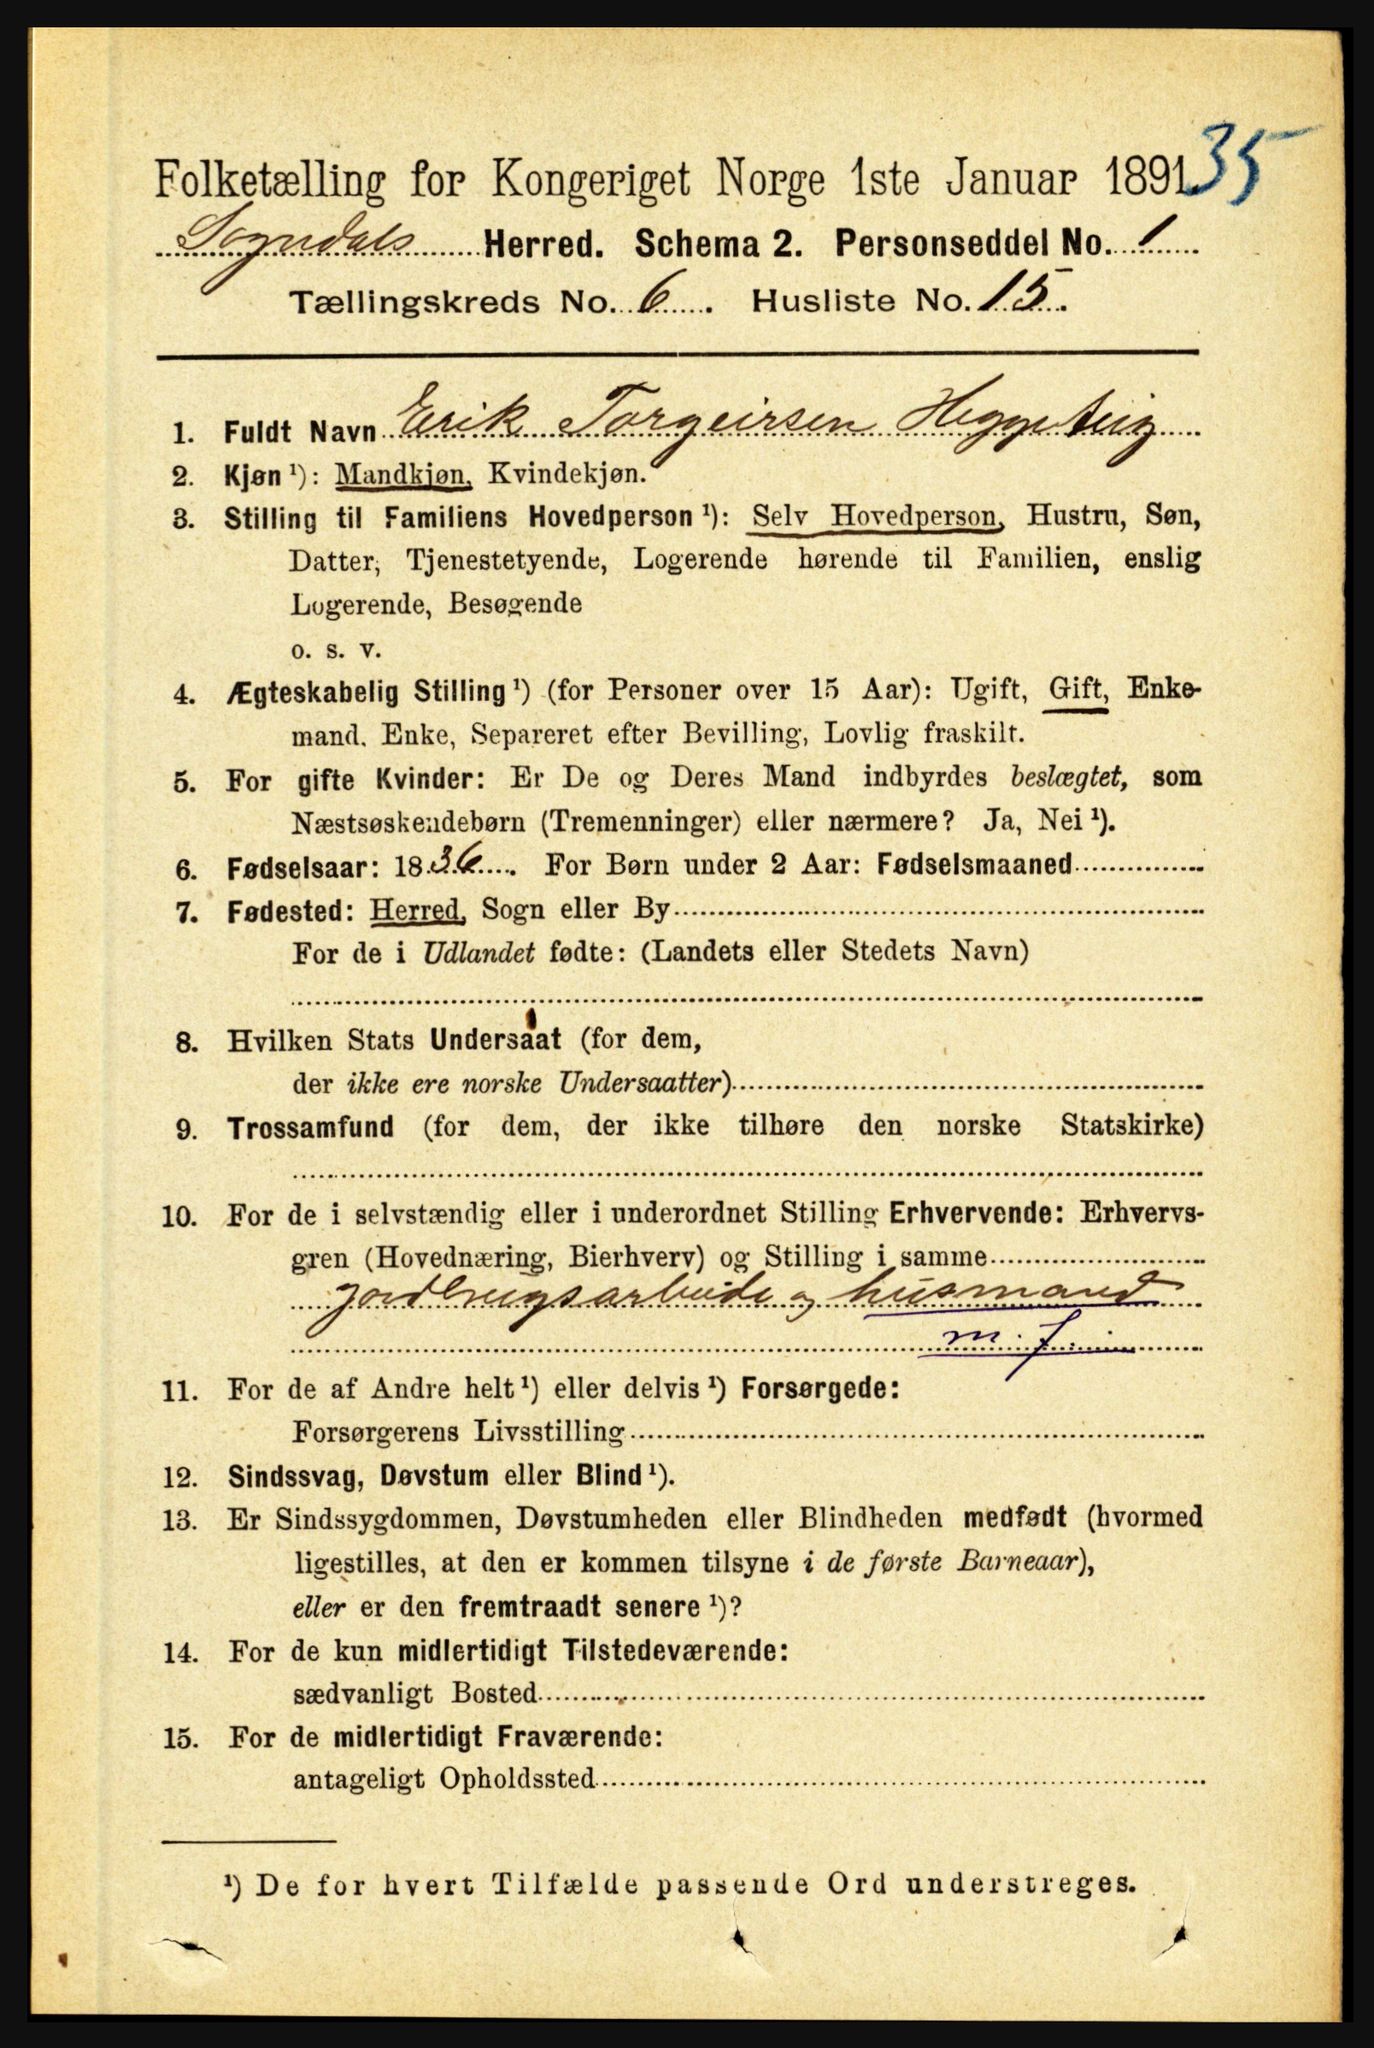 35
Folketælling for Kongeriget Norge 1ste Januar 1891.
Sogndals Herred. Schema 2. Personseddel No. 1
Tællingskreds No. 6. Husliste No. 15.
1. Fuldt Navn Erik Torgeirsen Heggesteig
2. Kjøn ¹): Mandkjøn, Kvindekjøn.
3. Stilling til Familiens Hovedperson ¹): Selv Hovedperson, Hustru, Søn,
Datter, Tjenestetyende, Logerende hørende til Familien, enslig
Logerende, Besøgende
o. s. v.
4. Ægteskabelig Stilling ¹) (for Personer over 15 Aar): Ugift, Gift, Enke-
mand, Enke, Separeret efter Bevilling, Lovlig fraskilt.
5. For gifte Kvinder: Er De og Deres Mand indbyrdes beslægtet, som
Næstsøskendebørn (Tremenninger) eller nærmere? Ja, Nei ¹).
6. Fødselsaar: 1836. For Børn under 2 Aar: Fødselsmaaned
7. Fødested: Herred, Sogn eller By
For de i Udlandet fødte: (Landets eller Stedets Navn)
8. Hvilken Stats Undersaat (for dem,
der ikke ere norske Undersaatter)
9. Trossamfund (for dem, der ikke tilhøre den norske Statskirke)
10. For de i selvstændig eller i underordnet Stilling Erhvervende: Erhvervs-
gren (Hovednæring, Bierhverv) og Stilling i samme
jordbrugsarbeide og husmand
m. j.
11. For de af Andre helt ¹) eller delvis ¹) Forsørgede:
Forsørgerens Livsstilling
12. Sindssvag, Døvstum eller Blind ¹).
13. Er Sindssygdommen, Døvstumheden eller Blindheden medfødt (hvormed
ligestilles, at den er kommen tilsyne i de første Barneaar),
eller er den fremtraadt senere ¹)?
14. For de kun midlertidigt Tilstedeværende:
sædvanligt Bosted
15. For de midlertidigt Fraværende:
antageligt Opholdssted
¹) De for hvert Tilfælde passende Ord understreges.